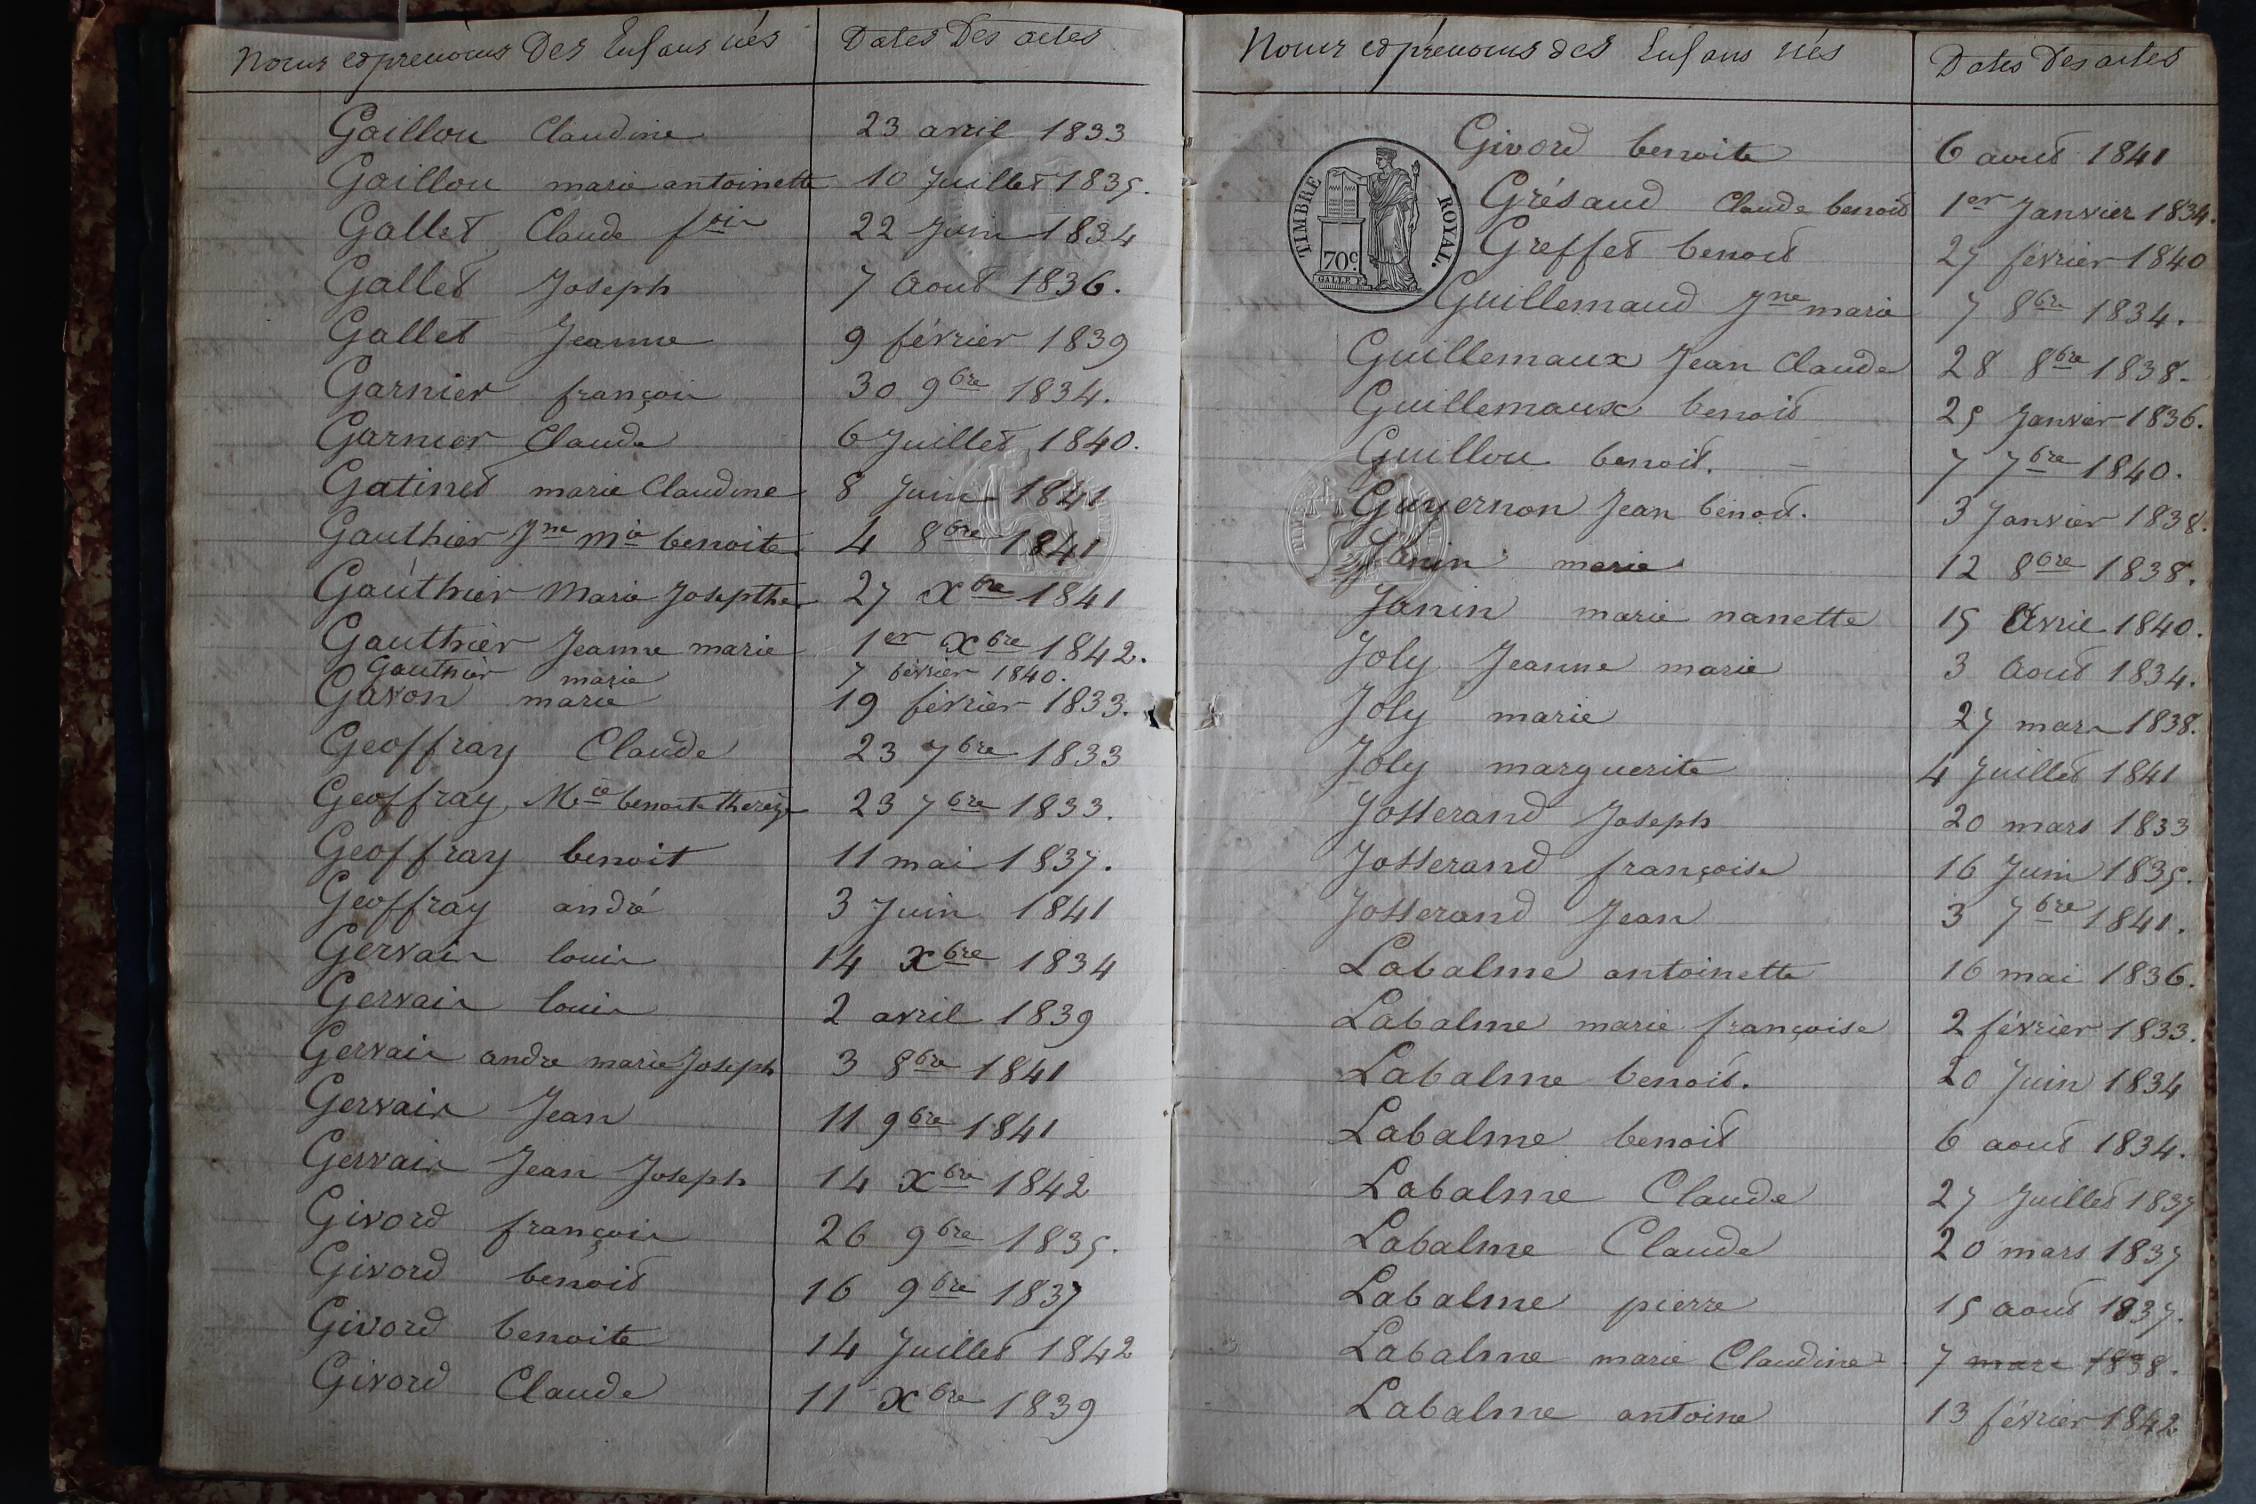 Noms et prénoms Des Enfans nés Dates Des actes
Gaillou Claudine 23 avril 1833
Gaillou marie antoinette 10 Juillet 1835.
Gallet Claude fois 22 Juin 1834
Gallet Joseph 7 Aout 1836.
Gallet Jeanne 9 février 1839
Garnier françois 30 9bre 1834.
Garnier Claude 6 Juillet 1840.
Gatinet marie Claudine 8 Juin 1841
Gauthier Jne Mie benoite 4 8bre 1841
Gauthier Marie Josepthe 27 Xbre 1841
Gauthier Jeanne marie 1er Xbre 1842.
Gauthier marie 7 février 1840.
Gavon marie 19 février 1833.
Geoffray Claude 23 7bre 1833
Geoffray, Mie benoite thereze 23 7bre 1833.
Geoffray benoit 11 mai 1837.
Geoffray andré 3 Juin 1841
Gervais louis 14 Xbre 1834
Gervais louis 2 avril 1839
Gervais andre marie Joseph 3 8bre 1841
Gervais Jean 11 9bre 1841
Gervais Jean Joseph 14 Xbre 1842
Givord françois 26 9bre 1835.
Givord benoit 16 9bre 1837
Givord benoite 14 Juillet 1842
Givord Claude 11 Xbre 1839
Noms et prénoms des Enfans nés Dates Des actes
Givord benoite 6 aout 1841
TIMBRE ROYAL.
70c.
Grésaud Claude benoit 1er Janvier 1834.
Greffet benoit 27 février 1840
Guillemaud Jne marie 7 8bre 1834.
Guillemaux Jean Claude 28 8bre 1838.
Guillemaux benoit 25 Janvier 1836.
Guillou benoit. 7 7bre 1840.
Guyernon Jean benoit. 3 Janvier 1838.
Janin marie 12 8bre 1838.
Janin marie nanette 15 Avril 1840.
Joly Jeanne marie 3 Aout 1834.
Joly marie 27 mars 1838.
Joly marguerite 4 Juillet 1841
Josserand Joseph 20 mars 1833
Josserand françoise 16 Juin 1835.
Josserand Jean 3 7bre 1841.
Labalme antoinette 16 mai 1836.
Labalme marie françoise 2 février 1833.
Labalme benoit. 20 Juin 1834
Labalme benoit 6 aout 1834.
Labalme Claude 27 Juillet 1837
Labalme Claude 20 mars 1837
Labalme pierre 15 aout 1837.
Labalme marie Claudine 7 mars 1838.
Labalme antoine 13 février 1842